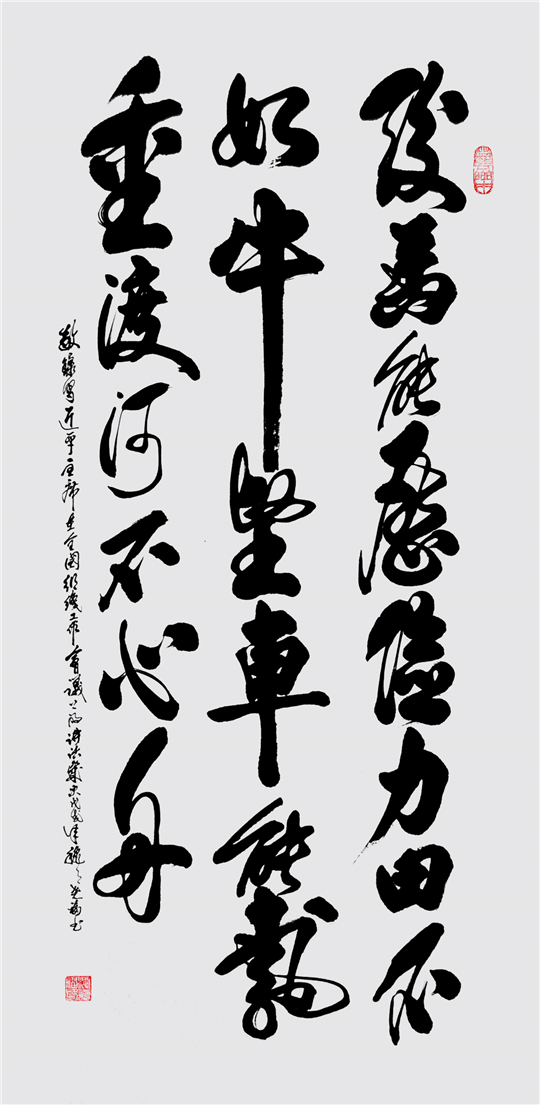 駿馬能歷險力田不
如牛堅車能載
重渡河不如舟
敬錄習近平主席在全國組織工作會議上的講話歲次戊戌書